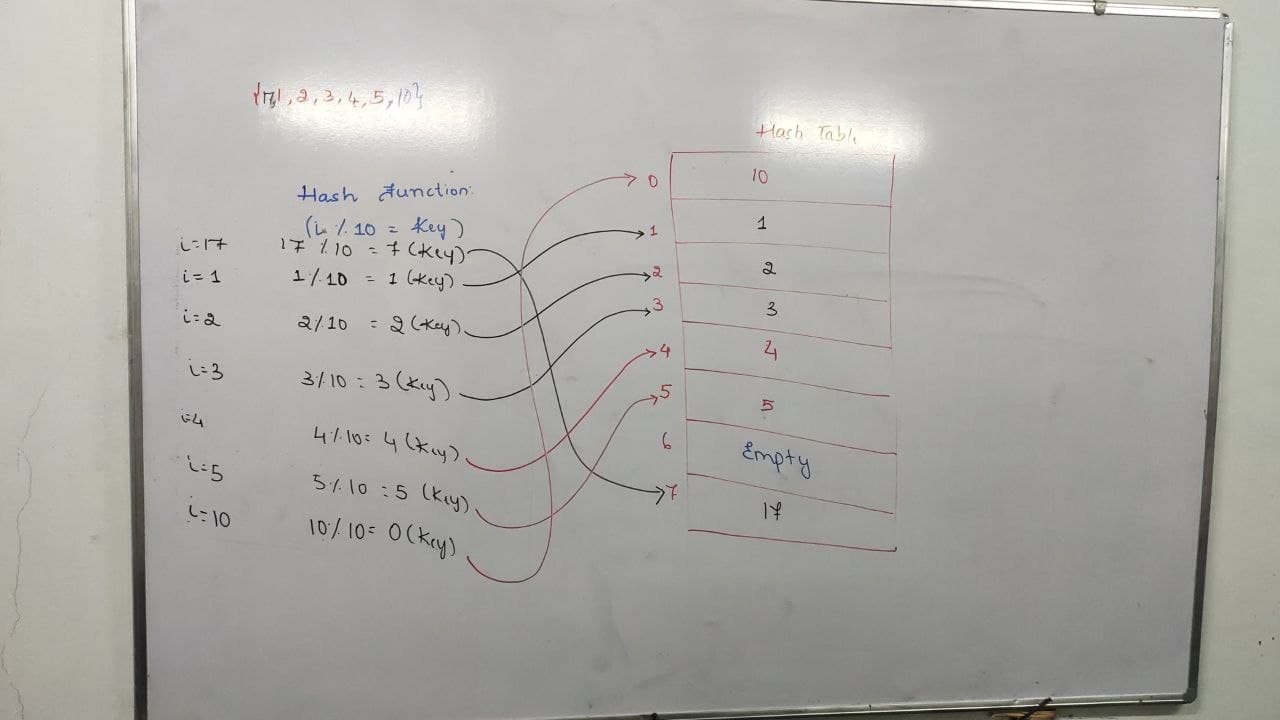 {17,1,2,3,4,5,10}
Hash Function:
(i % 10 = Key)
i=17 17 % 10 = 7 (Key)
i=1 1 % 10 = 1 (Key)
i=2 2 % 10 = 2 (Key)
i=3 3 % 10 = 3 (Key)
i=4 4 % 10 = 4 (Key)
i=5 5 % 10 = 5 (Key)
i=10 10 % 10 = 0 (Key)
Hash Table
0 10
1 1
2 2
3 3
4 4
5 5
6 Empty
7 17